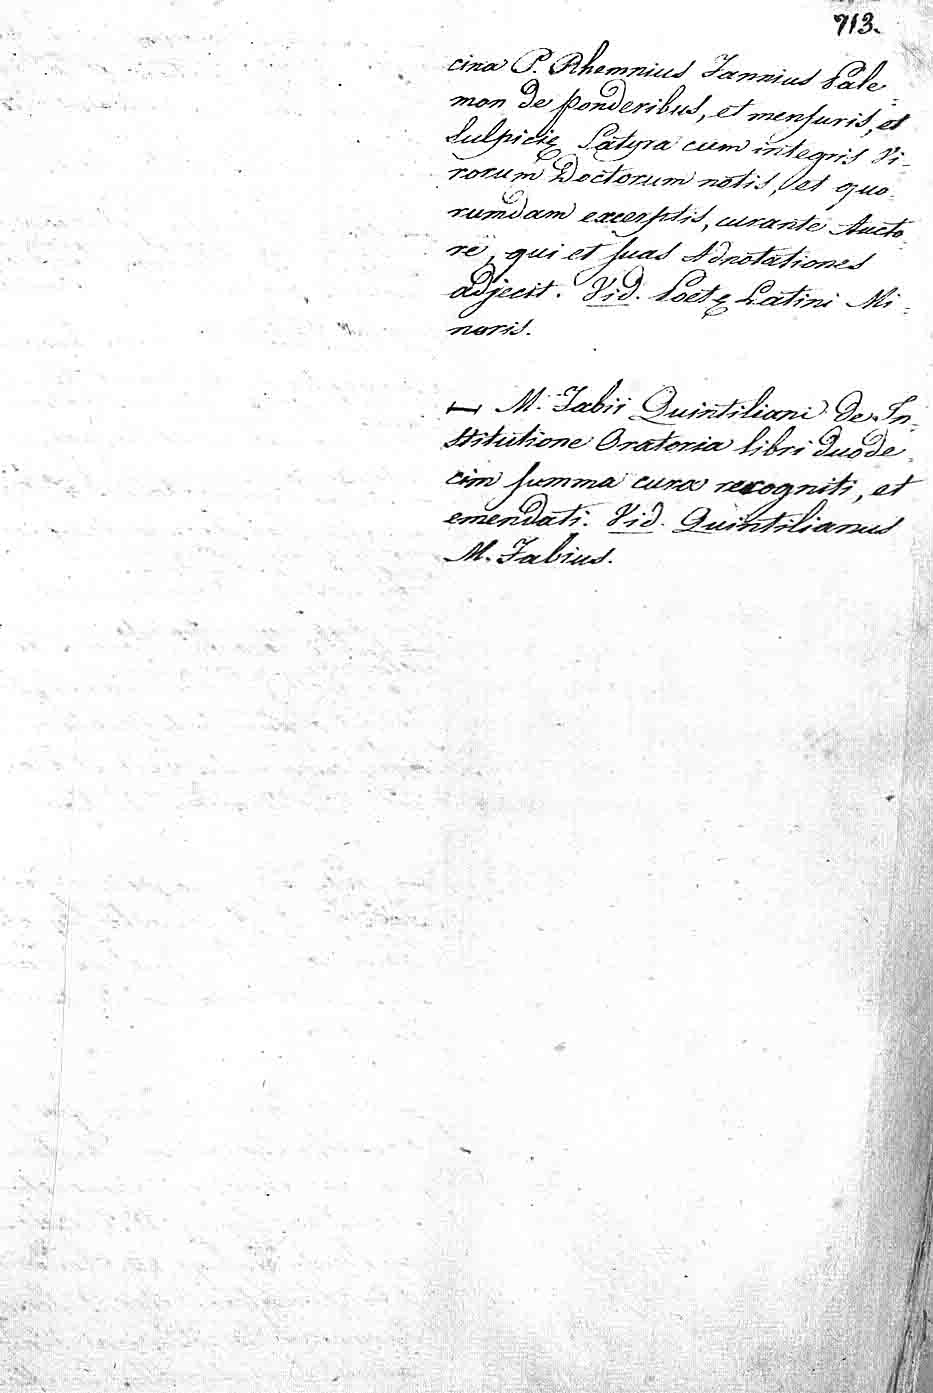 713.
cina P. Rhemnius Fannius Pale=
mon de ponderibus, et mensuris, et
Sulpicię Satyra cum integris Vi-
rorum Doctorum notis, et quo-
rumdam excerptis, curante Aucto-
re, qui et suas Adnotationes
adjecit. Vid. Poetę Latini Mi=
noris.
— M. Fabii Quintiliani De In-
stitutione Oratoria libri duode-
cim summa cura recogniti, et
emendati. Vid. Quintilianus
M. Fabius.